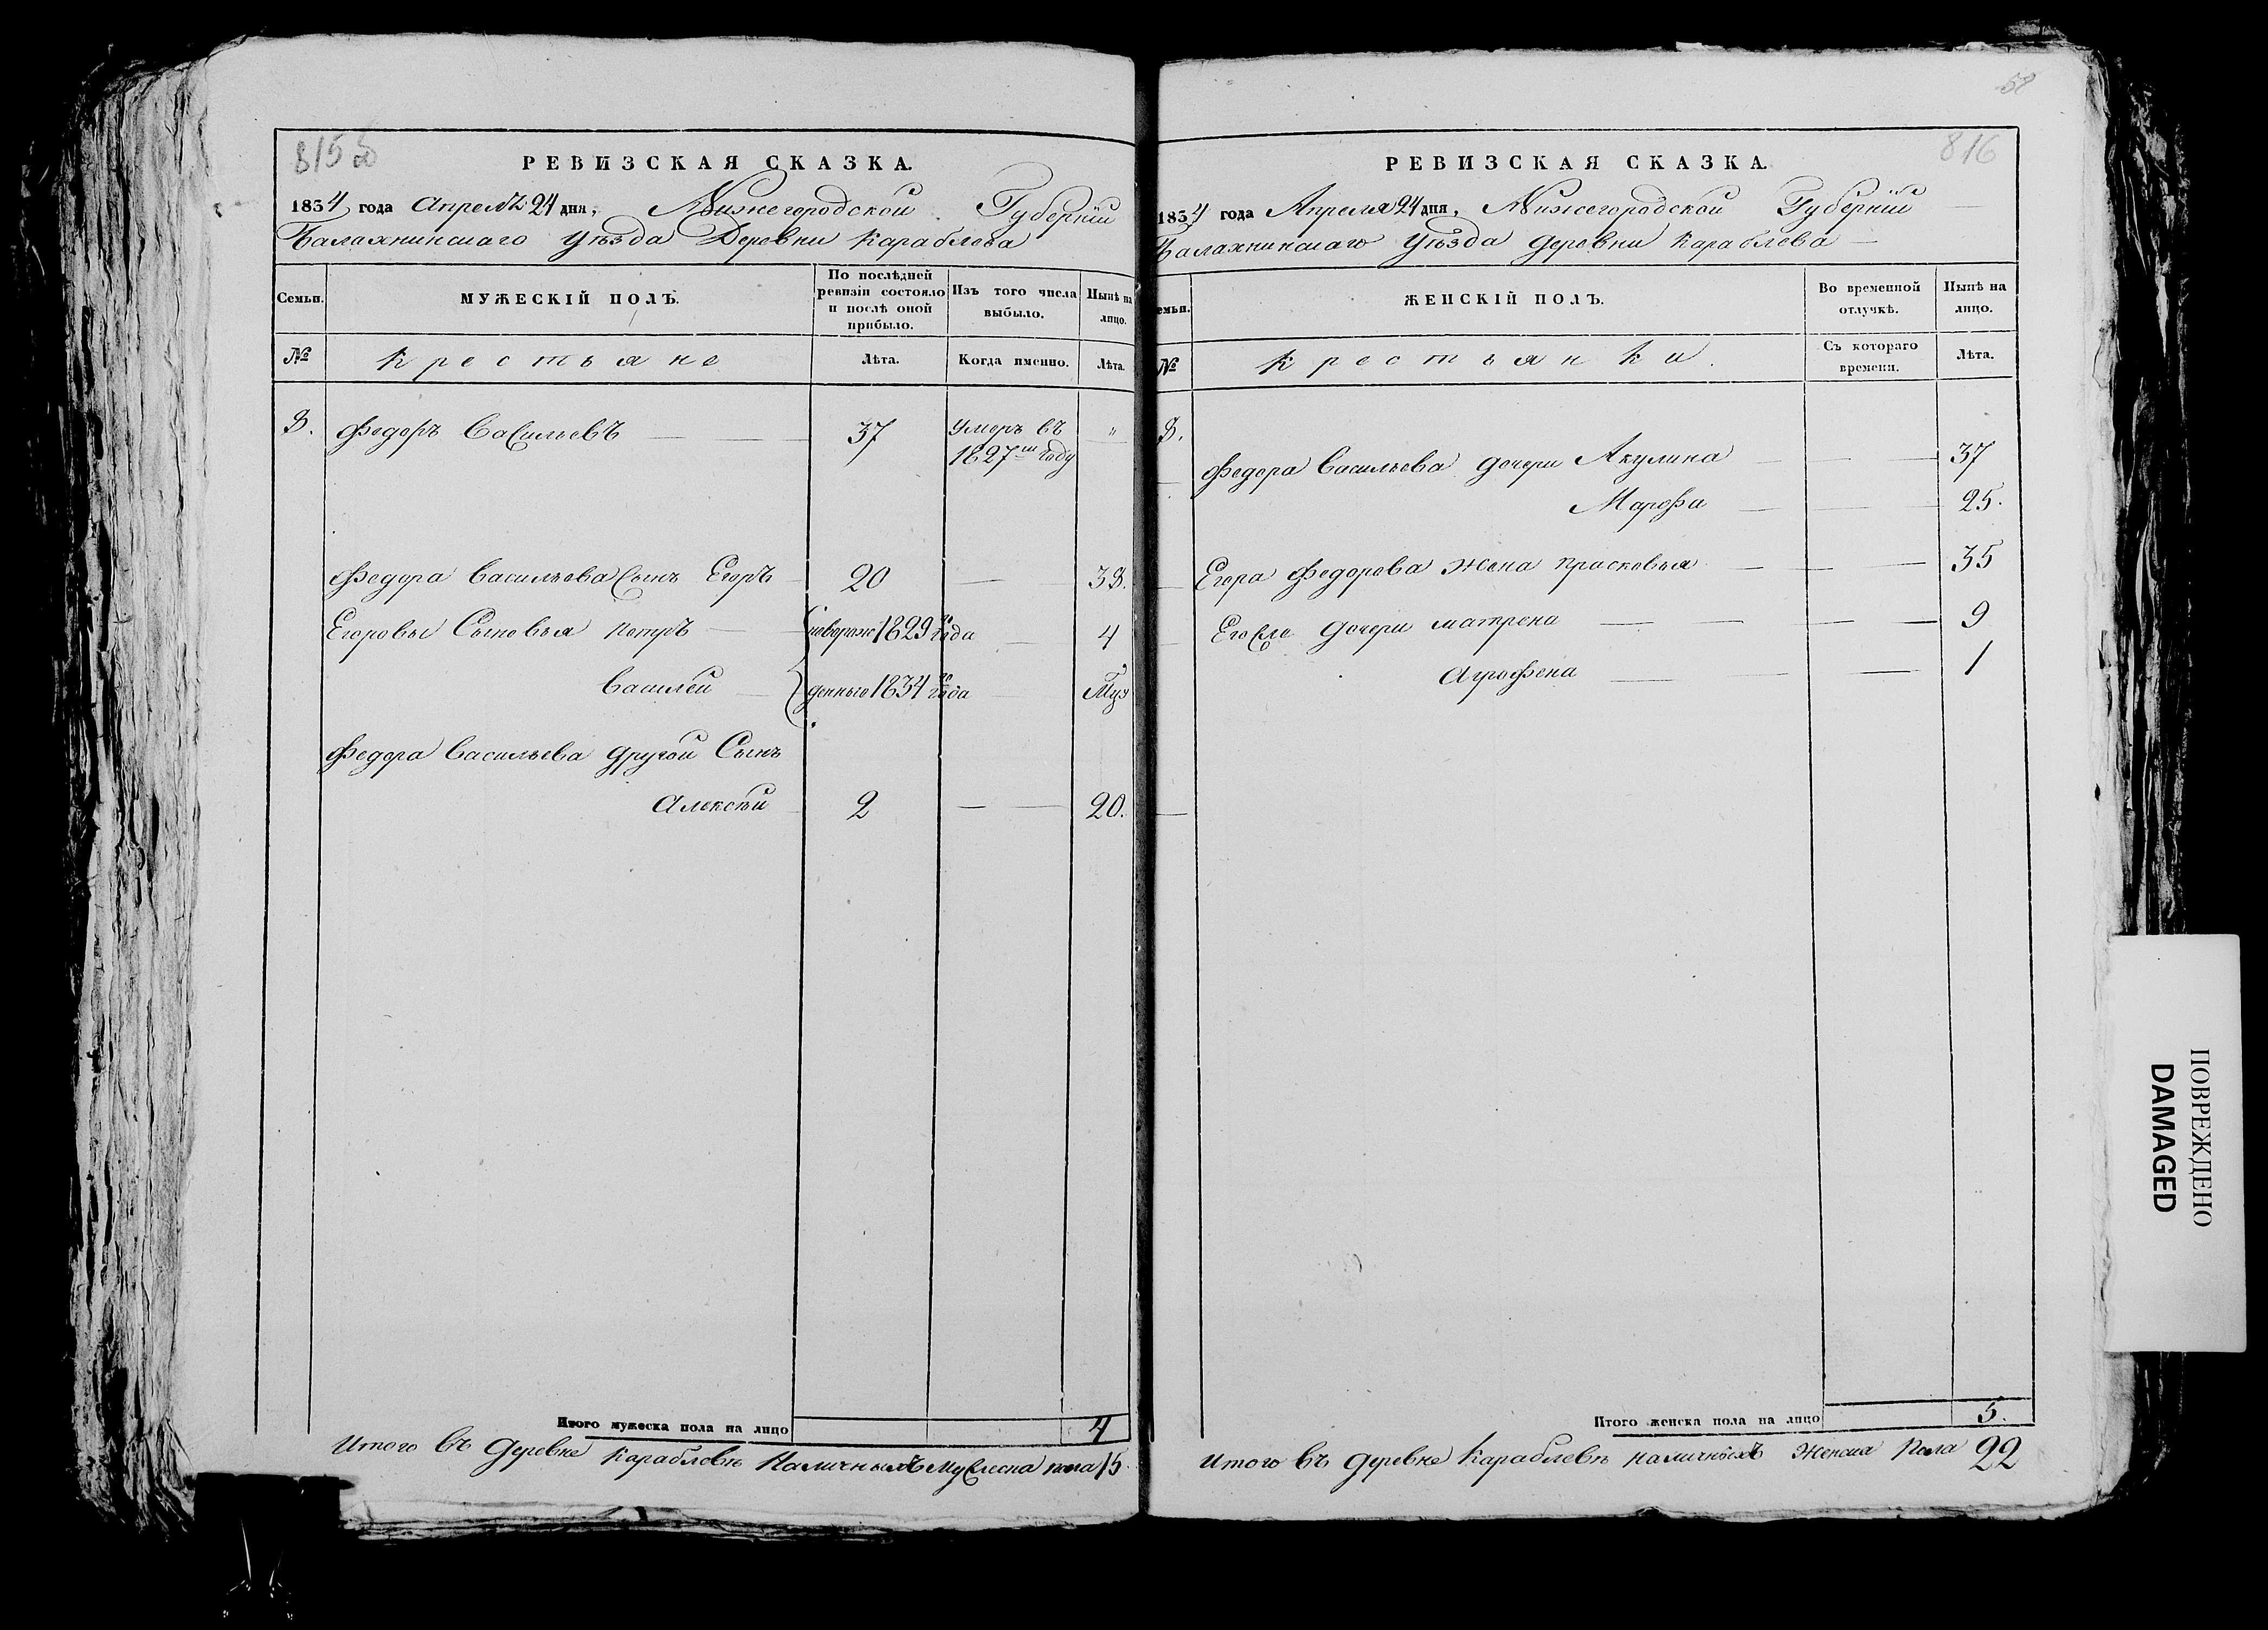 815 об
РЕВИЗСКАЯ СКАЗКА.
1834 года Апреля 24 дня, Нижегородской Губерніи
Балахнинскаго Уѣзда Деревни Караблева
Семьи.
МУЖЕСКІЙ ПОЛЪ.
По послѣдней
ревизіи состояло
и послѣ оной
прибыло.
Изъ того числа
выбыло.
Нынѣ на
лицо.
№
Крестьяне
Лѣта.
Когда именно.
Лѣта.
8. Федоръ Васильевъ 37 Умеръ въ "
1827м году
Федора Васильева Сынъ Егоръ 20 — 38.
Егоровы Сыновья Петръ новорож 1829го года 4
Василей денные 1834го года
Федора Васильева другой Сынъ
Алексѣй 2 — 20.
Итого мужеска пола на лицо 4
Итого въ деревне Караблевѣ Наличныхъ Мужеска пола 15.
58
816
РЕВИЗСКАЯ СКАЗКА.
1834 года Апреля 24 дня, Нижегородской Губерніи
Балахнинскаго Уѣзда деревни Караблева
емьи.
ЖЕНСКІЙ ПОЛЪ.
Во временной
отлучкѣ.
Нынѣ на
лицо.
№
Крестьянки.
Съ котораго
времени.
Лѣта.
8.
Федора Васильева дочери Акулина 37
Марфа 25.
Егора Федорова жена Прасковья 35
Его же дочери Матрена 9
Агрофена 1
Итого женска пола на лицо 5.
Итого въ деревне Караблевѣ наличныхъ Женска Пола 22
ПОВРЕЖДЕНО
DAMAGED